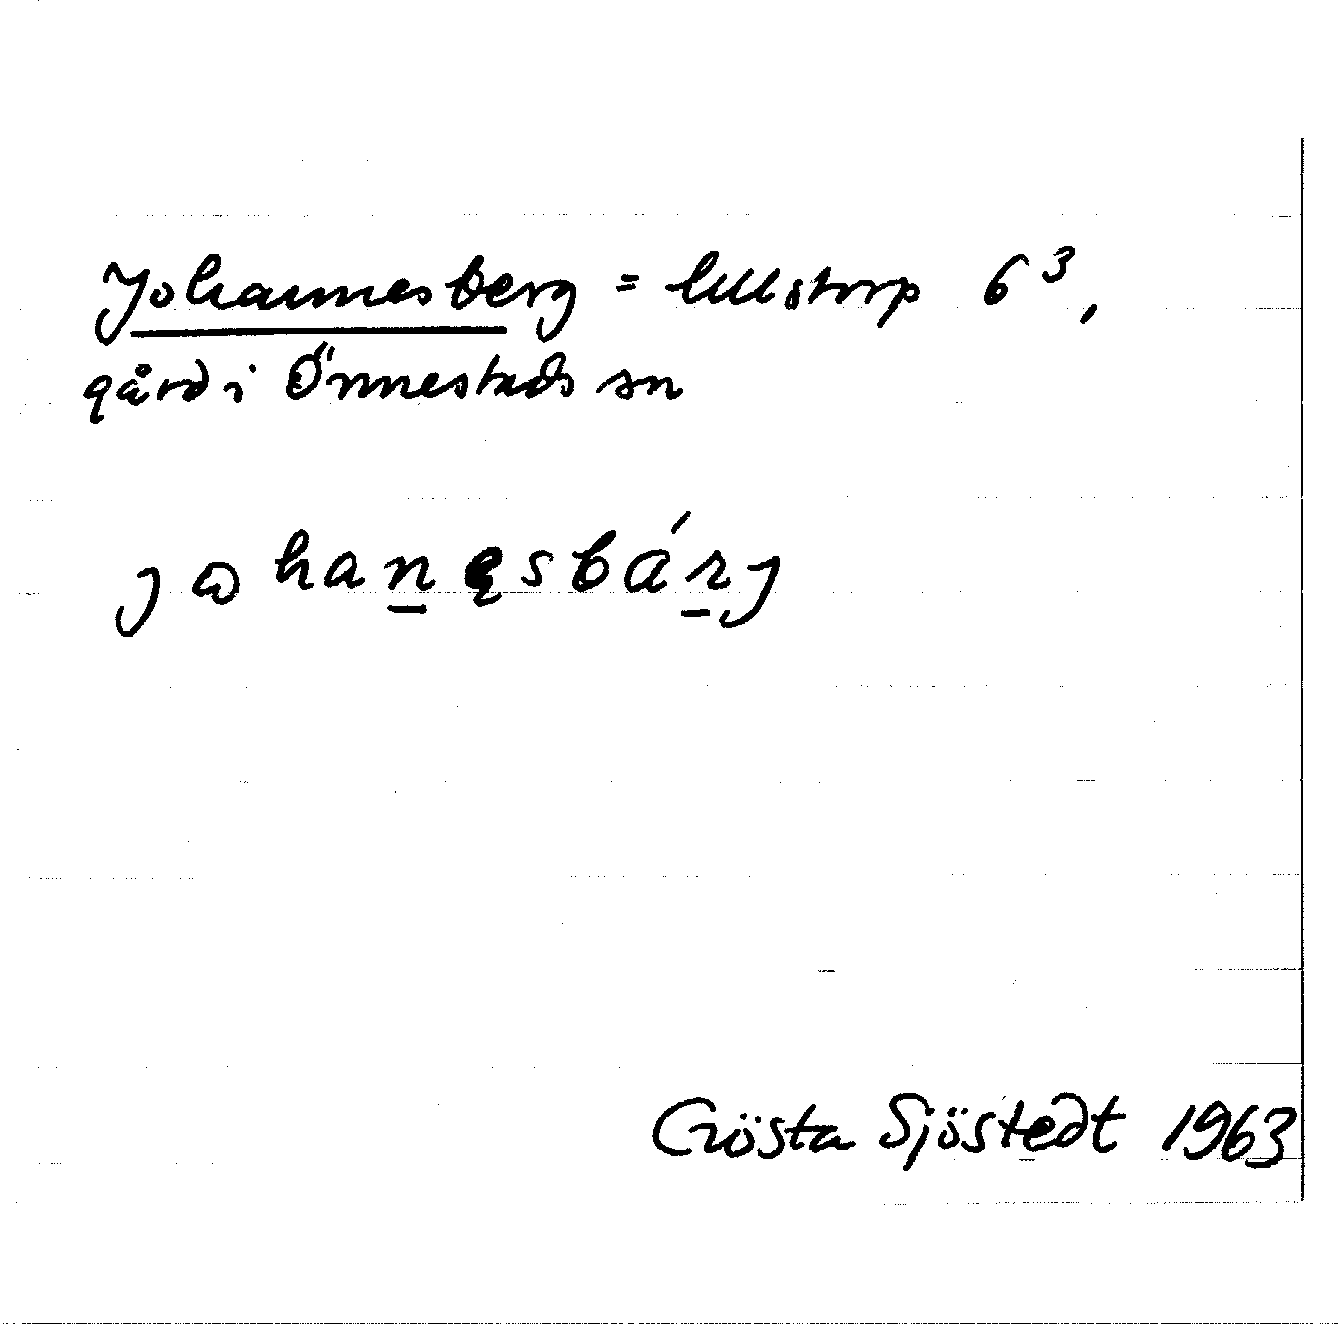 Johannesberg = Lillstorp 6³,
gård i Önnestads sn
jωhan̲ęsbárj
Gösta Sjöstedt 1963